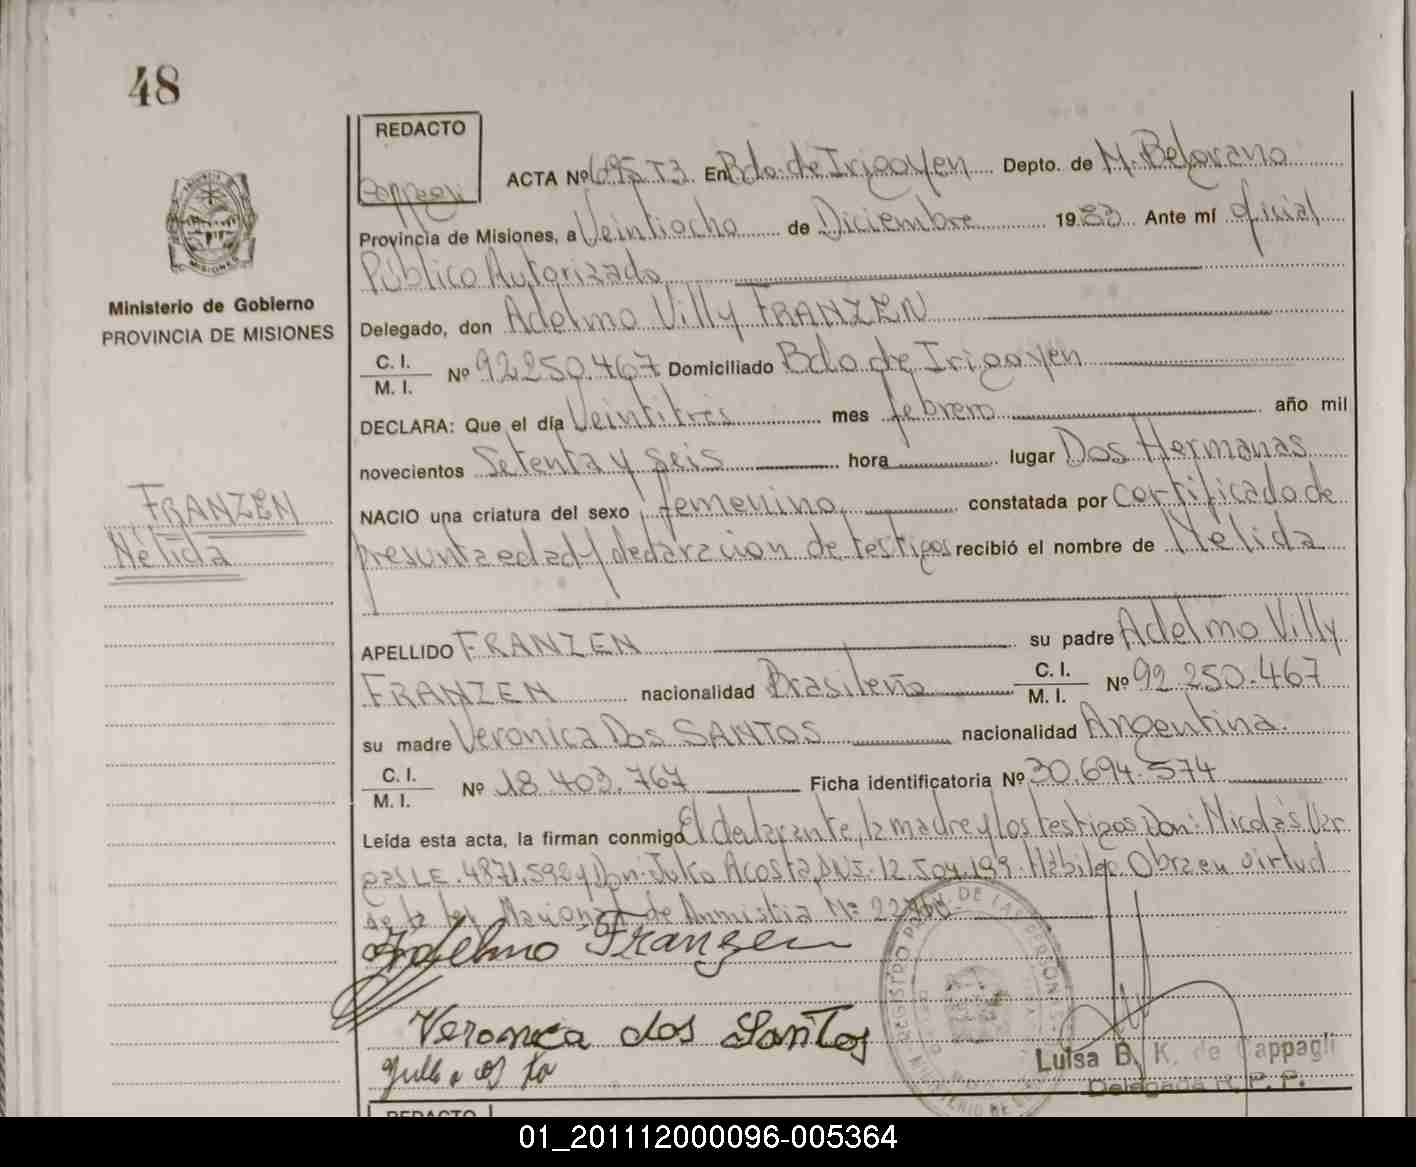 48
REDACTO
Cappagli
ACTA Nº 695 T3 En Bdo. de Irigoyen Depto. de M. Belgrano
Provincia de Misiones, a Veintiocho de Diciembre 1983 Ante mí Oficial
Público Autorizado
MISIONES
Ministerio de Gobierno
PROVINCIA DE MISIONES
Delegado, don Adelmo Villy FRANZEN
C. I.
M. I. Nº 92.250.467 Domiciliado Bdo de Irigoyen
DECLARA: Que el día Veintitrés mes febrero año mil
novecientos Setenta y Seis hora lugar Dos Hermanas
FRANZEN
Nélida
NACIO una criatura del sexo femenino constatada por certificado de
presunta edad y declaración de testigos recibió el nombre de Nélida
APELLIDO FRANZEN su padre Adelmo Villy
FRANZEN nacionalidad Brasileña C. I. M. I. Nº 92.250.467
su madre Verónica Dos SANTOS nacionalidad Argentina.
C. I.
M. I. Nº 18.403.767 Ficha identificatoria Nº 30.694.574
Leída esta acta, la firman conmigo El declarante, la madre y los testigos Don: Nicolás Var
gas LE. 4871.592 y Don: Julio Acosta DNI. 12.504.199. Hábiles Obra en virtud
de la ley Nacional de Amnistia Nº
Adelmo Franzen
Veronica dos Santos
REGISTRO DE LAS PERSONAS
Luisa B. K. de Cappagli
Delegada R. P. P.
REDACTO
01_201112000096-005364